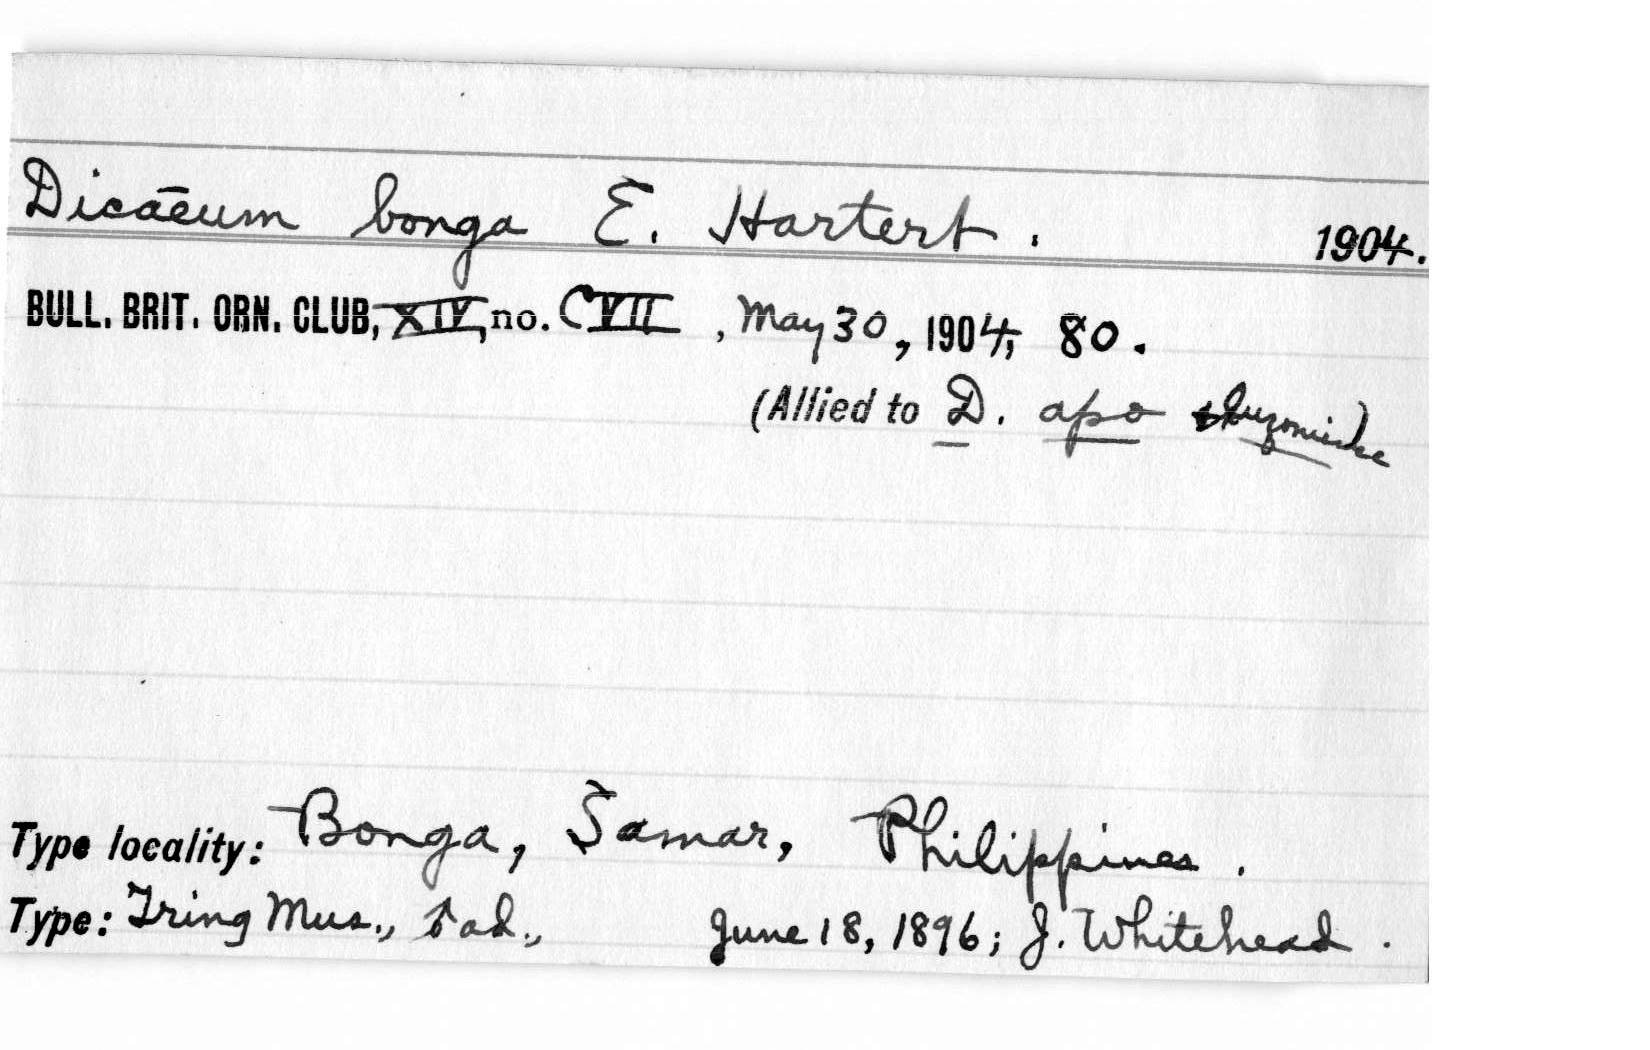 Dicāeum bonga E. Hartert. 1904.
BULL. BRIT. ORN. CLUB, XIV, no. CVII, May 30, 1904, 80.
(Allied to D. apo & luzoniense)
Type locality: Bonga, Samar, Philippines.
Type: Tring Mus., ad., June 18, 1896; J. Whitehead.